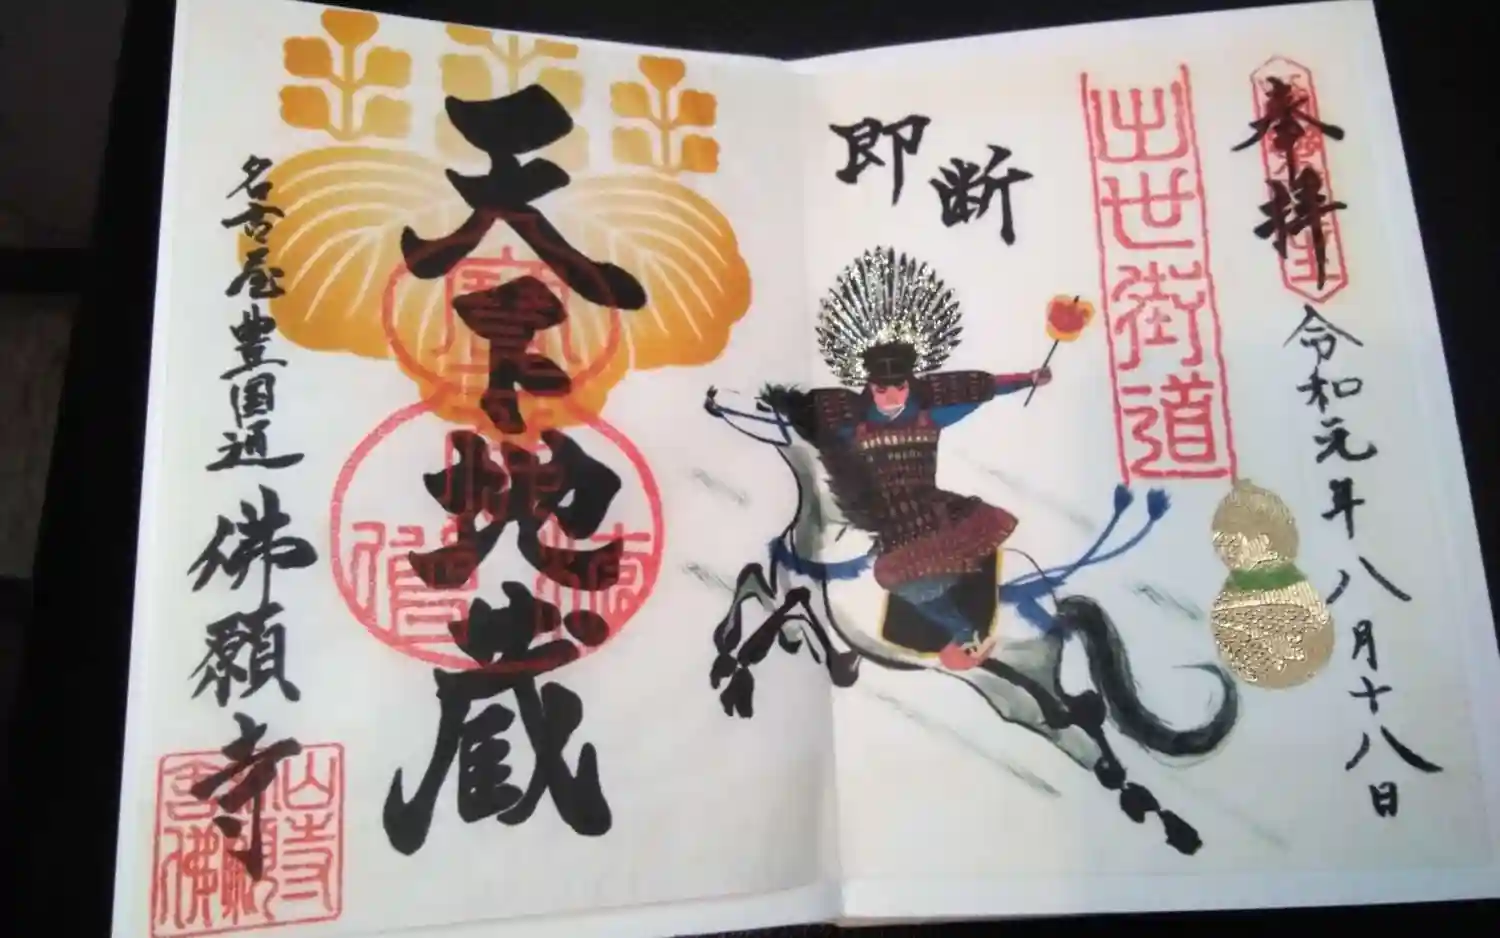 奉拝
令和元年八月十八日
出世街道
即断
天下地蔵
名古屋豊国通
佛願寺